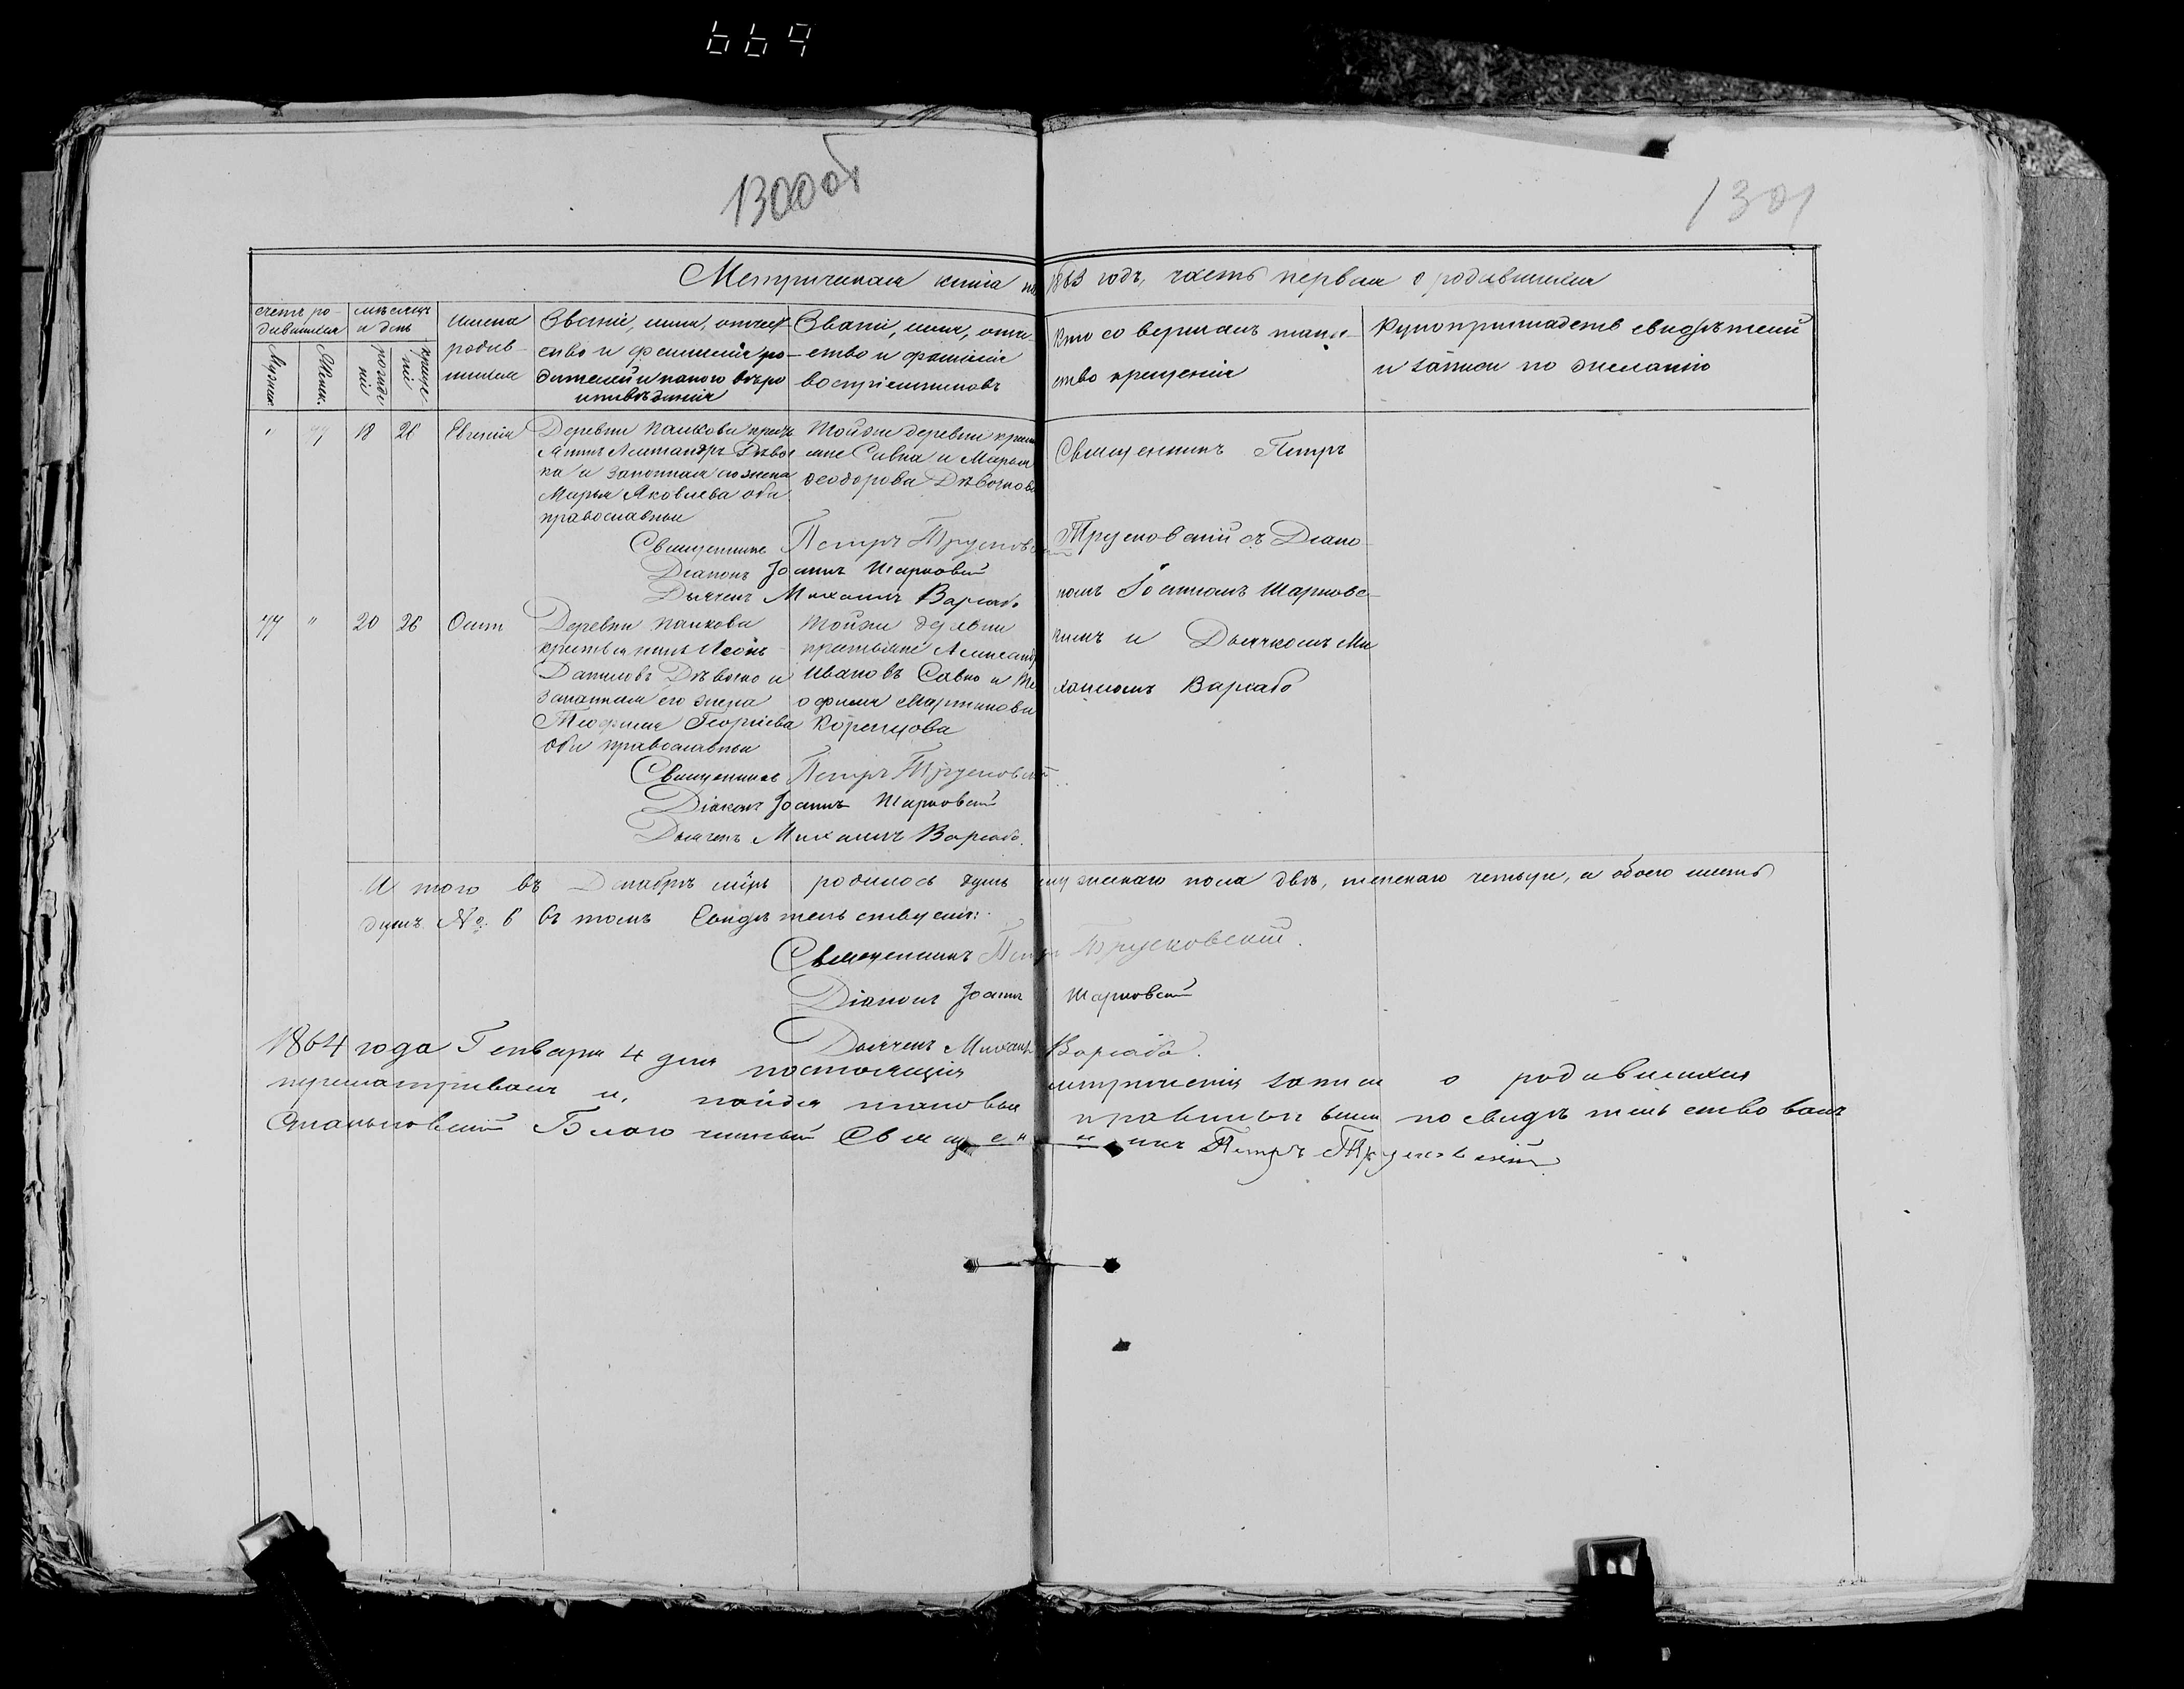 669
1300об
1301
Метрическая книга на 1863 годъ, часть первая о родившихся
счетъ ро-
дившихся
Мужск.
Женск.
мѣсяцъ
и день
рожде
нія
креще-
нія
имена
родив-
шихся
Званіе, имя, отчест-
ство и фамилія ро-
дителей и какого вѣро
исповѣданія
Званіе, имя, отче-
ство и фамилія
воспріемниковъ
Кто совершалъ таин-
ство крещенія
Рукоприкладство свидѣтелей
и записи по желанію
" 77 18 26 Евгенія
Деревни
и законная его жена
Марья Яковлева оба
православныи
Тойжи деревни
Савка и Марья
Ѳеодорова Дѣвочкова
Священникъ Петръ Трусковскій
Діаконъ Іоаннъ Шарковскій
Дьячекъ Михаилъ Варсаба
Священникъ Петръ
Трусковскій съ Діако-
номъ Іоанномъ Шарковс-
кимъ и Дьячкомъ Ми
хаиломъ Варсабо
77 " 20 26 Осип
Деревни
Даниловъ Дѣвочко и
законная его жена
Теофиля Георгіева
оби православныи
Тойжи деревни
Ивановъ Савко и Те
офиля Мартинова
Коренцова
Священникъ Петръ Трусковскій
Діаконъ Іоаннъ Шарковскій
Дьячекъ Михаилъ Варсаба.
И того въ Декабрѣ родилось душъ мужскаго пола двѣ, женскаго четыри, а обоего шесть
душъ № 6 въ томъ Свидѣтельствуемъ:
Священникъ Петръ Трусковскій.
Діаконъ Іоаннъ Шарковскій
Дьячекъ Михаилъ Варсаба.
1864 года Генваря 4 дня настоящія метрическія записи о родившихся
пересматривалъ и, найдя таковыя правильными посвидѣтельствовалъ
Благочинный Священникъ Петръ Трусковскій.